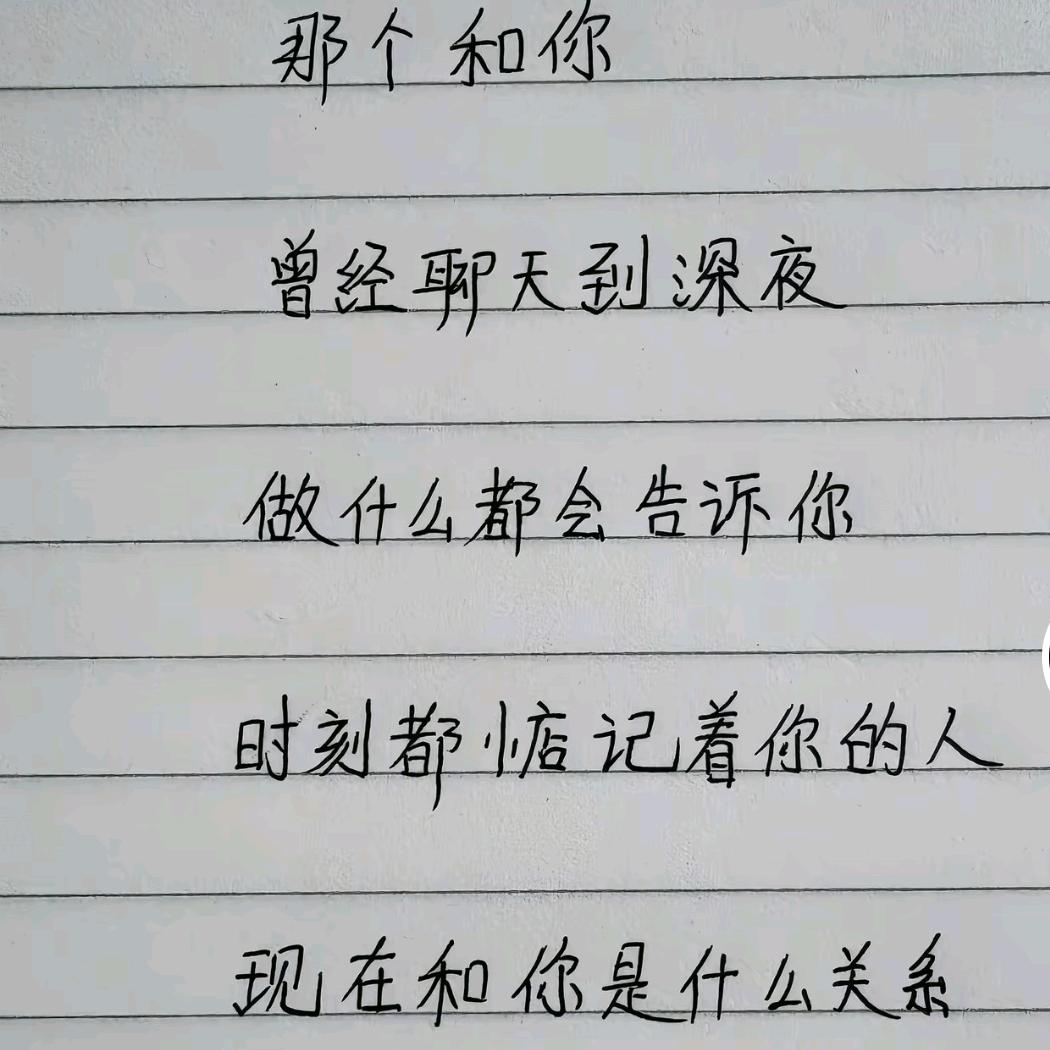 那个和你
曾经聊天到深夜
做什么都会告诉你
时刻都惦记着你的人
现在和你是什么关系